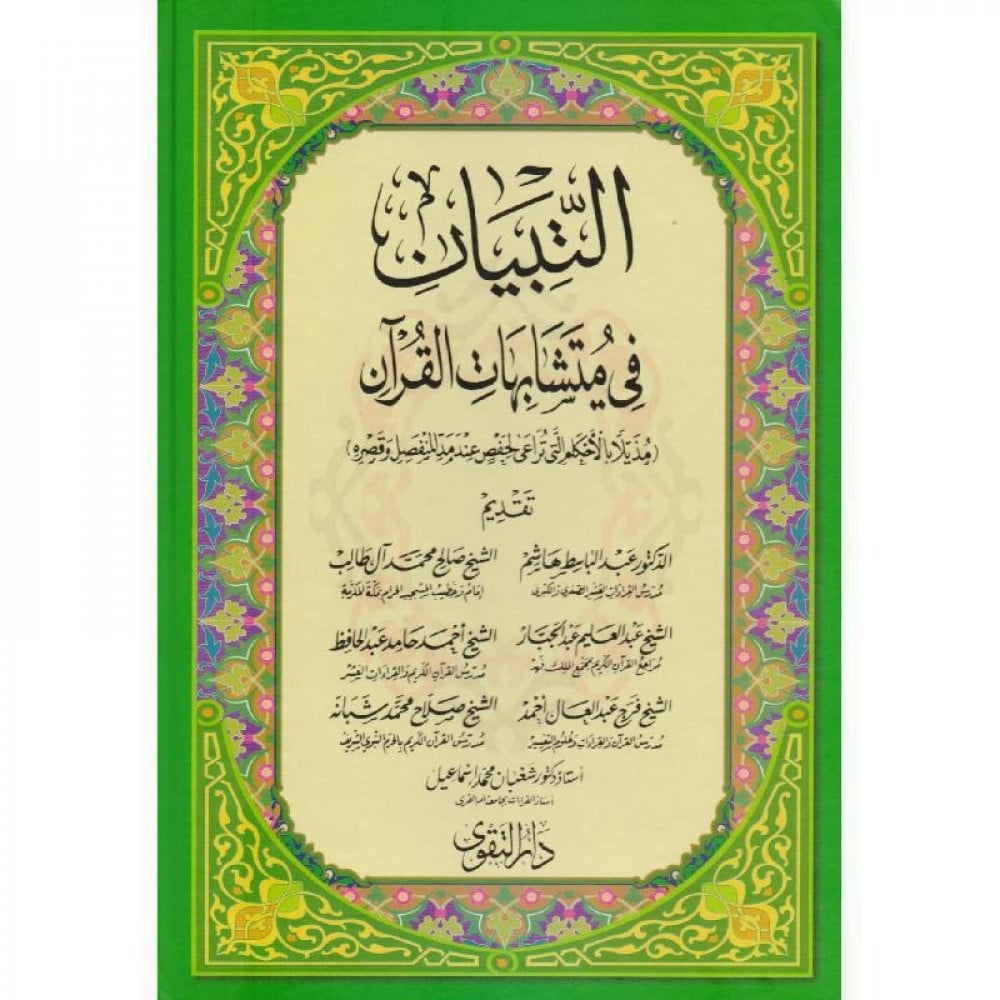 التِّبْيَانِ
فِي مُتَشَابِهَاتِ الْقُرْآنِ
(مُذَيَّلًا بِالْأَحْكَامِ الَّتِي تُرَاعَى لِحَفْصٍ عِنْدَ مَدِّ الْمُنْفَصِلِ وَقَصْرِهِ)
تَقْدِيمْ
الدكتور عبد الباسط هاشم
مدرس القراءات العشر الصغرى والكبرى
الشيخ صالح محمد آل طالب
إمام وخطيب المسجد الحرام بمكة المكرمة
الشيخ عبد العليم عبد الجبار
مراجع القرآن الكريم بمجمع الملك فهد
الشيخ أحمد حامد عبد الحافظ
مدرس القرآن الكريم والقراءات العشر
الشيخ فرج عبد العال أحمد
مدرس القرآن والقراءات وعلوم التفسير
الشيخ صلاح محمد شبانه
مدرس القرآن الكريم بالحرم النبوي الشريف
أستاذ دكتور شعبان محمد إسماعيل
أستاذ القراءات بجامعة أم القرى
دار التقوى